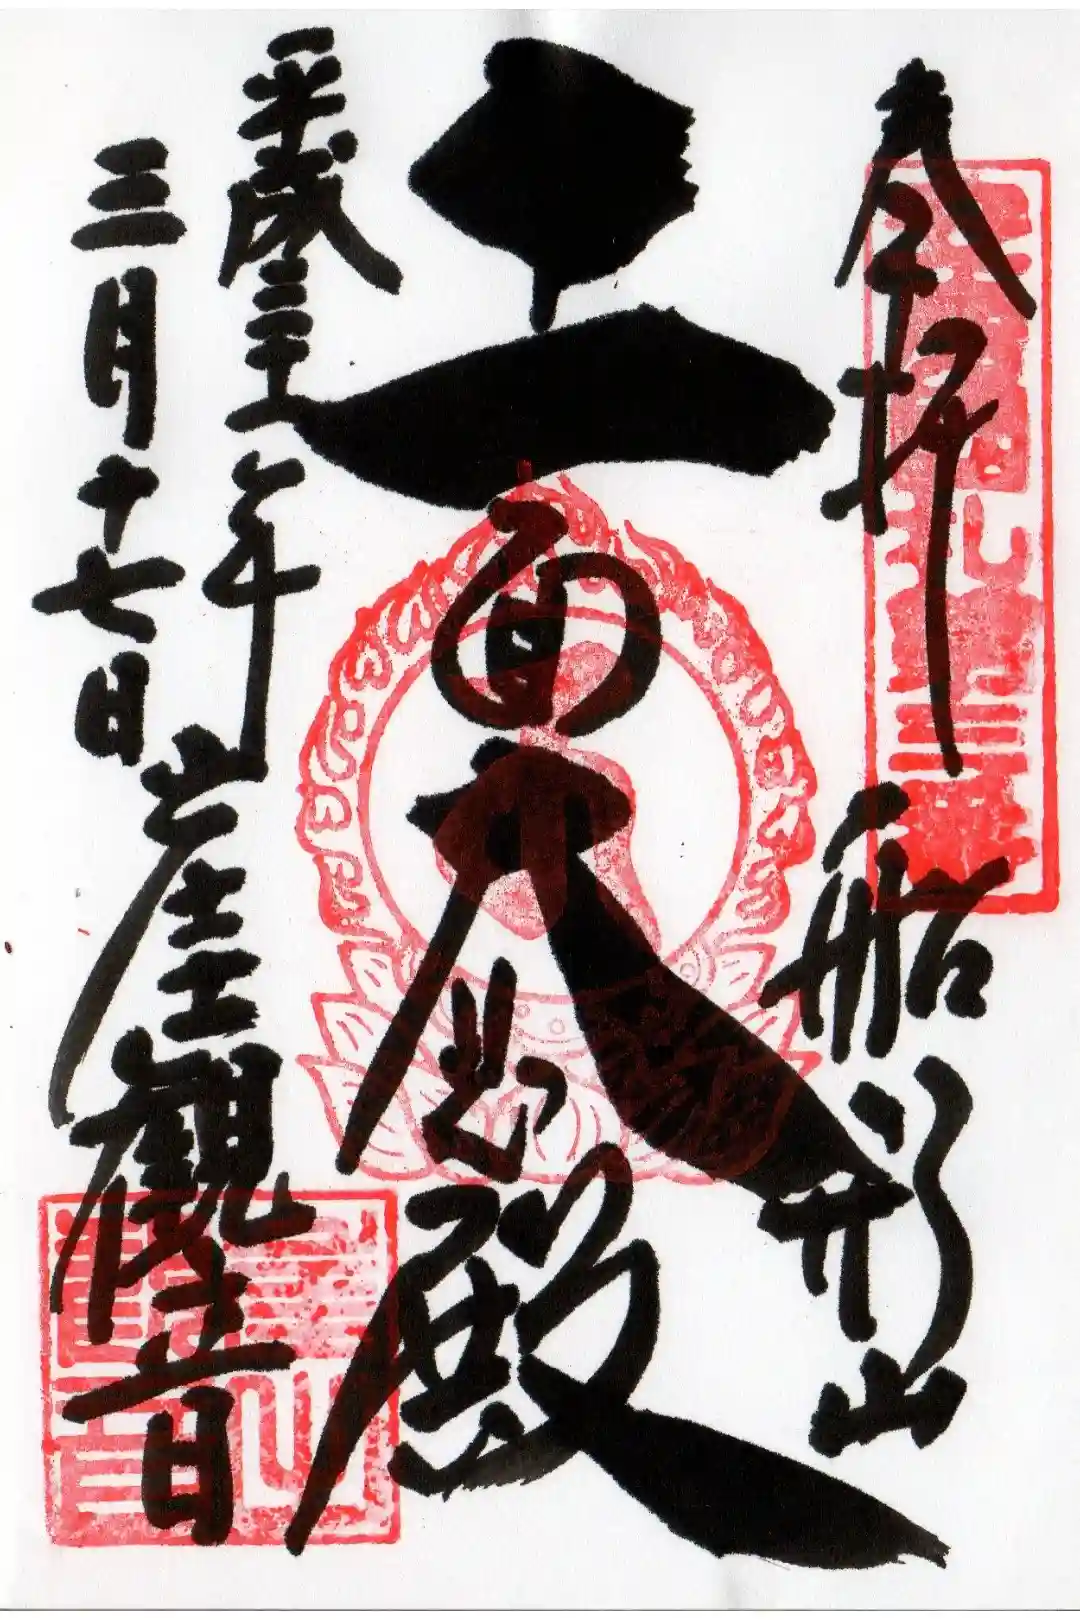 奉拝　船形山
十一面大悲殿
平成三十一年
三月十七日
崖觀音